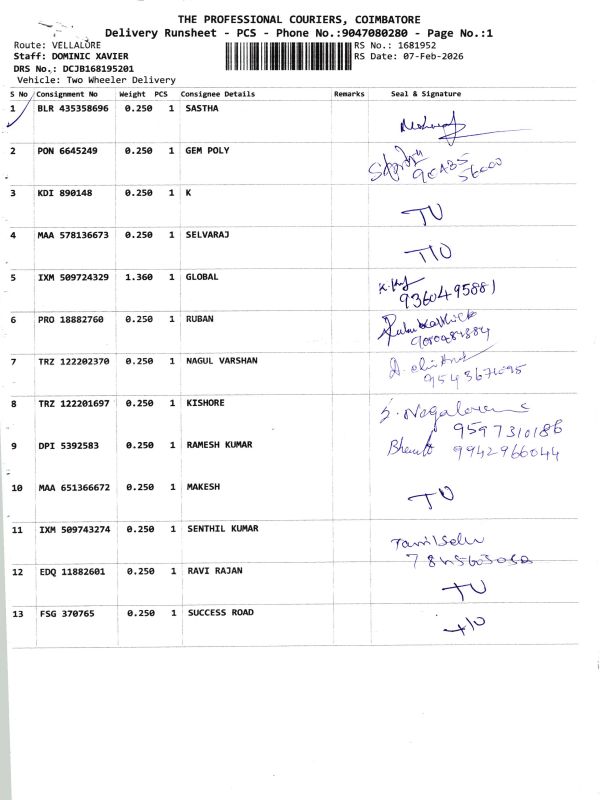 THE PROFESSIONAL COURIERS, COIMBATORE
Delivery Runsheet - PCS - Phone No.:9047080280 - Page No.:1
Route: VELLALORE RS No.: 1681952
Staff: DOMINIC XAVIER RS Date: 07-Feb-2026
DRS No.: DCJB168195201
Vehicle: Two Wheeler Delivery
S No Consignment No Weight PCS Consignee Details Remarks Seal & Signature
1 BLR 435358696 0.250 1 SASTHA
2 PON 6645249 0.250 1 GEM POLY
3 KDI 890148 0.250 1 K
TU
4 MAA 578136673 0.250 1 SELVARAJ
TIO
5 IXM 509724329 1.360 1 GLOBAL
9360495881
6 PRO 18882760 0.250 1 RUBAN
7 TRZ 122202370 0.250 1 NAGUL VARSHAN
8 TRZ 122201697 0.250 1 KISHORE
9597310186
9 DPI 5392583 0.250 1 RAMESH KUMAR
9942966044
10 MAA 651366672 0.250 1 MAKESH
TU
11 IXM 509743274 0.250 1 SENTHIL KUMAR
Tamilselu
12 EDQ 11882601 0.250 1 RAVI RAJAN
TU
13 FSG 370765 0.250 1 SUCCESS ROAD